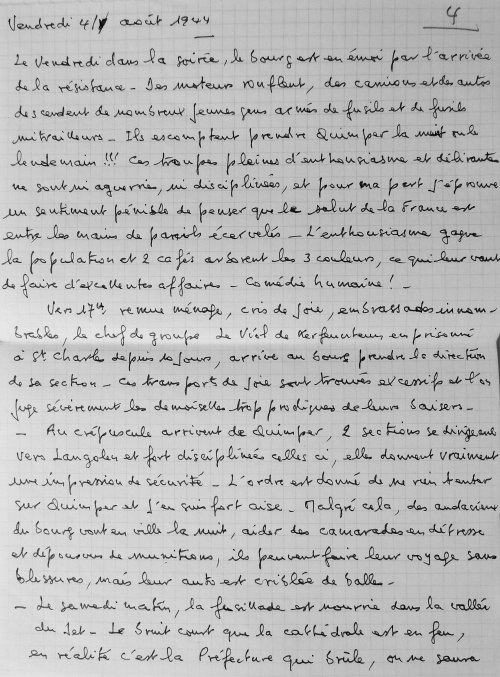 Vendredi 4 août 1944
4
Le vendredi dans la soirée, le bourg est en émoi par l'arrivée
de la résistance - Des moteurs ronflent, des camions et des autos
descendent de nombreux jeunes gens armés de fusils et de fusils
mitrailleurs - Ils escomptent prendre Quimper la nuit ou le
lendemain !!! Ces troupes pleines d'enthousiasme et délirantes
ne sont ni aguerries, ni disciplinées, et pour ma part j'éprouve
un sentiment pénible de penser que le salut de la France est
entre les mains de pareils écervelés - L'enthousiasme gagne
la population et 2 cafés arborent les 3 couleurs, ce qui leur vaut
de faire d'excellentes affaires - Comédie humaine ! -
Vers 17h remue ménage, cris de joie, embrassades innom-
brables, le chef de groupe Le Viol de Kerfeunteun emprisonné
à St Charles depuis 10 jours, arrive au bourg prendre la direction
de sa section - Ces transports de joie sont trouvés excessifs et l'on
juge sévèrement les demoiselles trop prodigues de leurs baisers -
- Au crépuscule arrivent de Quimper, 2 sections se dirigeant
vers Langolen et fort disciplinées celles ci, elle donnent vraiment
une impression de sécurité - L'ordre est donné de ne rien tenter
sur Quimper et j'en suis fort aise - Malgré cela, des audacieux
du bourg vont en ville la nuit, aider des camarades en détresse
et dépourvus de munitions, ils peuvent faire leur voyage sans
blessures, mais leur auto est criblée de balles -
- Le samedi matin, la fusillade est nourrie dans la vallée
du Jet - Le bruit court que la cathédrale est en feu,
en réalité c'est la Préfecture qui brûle, on ne saura